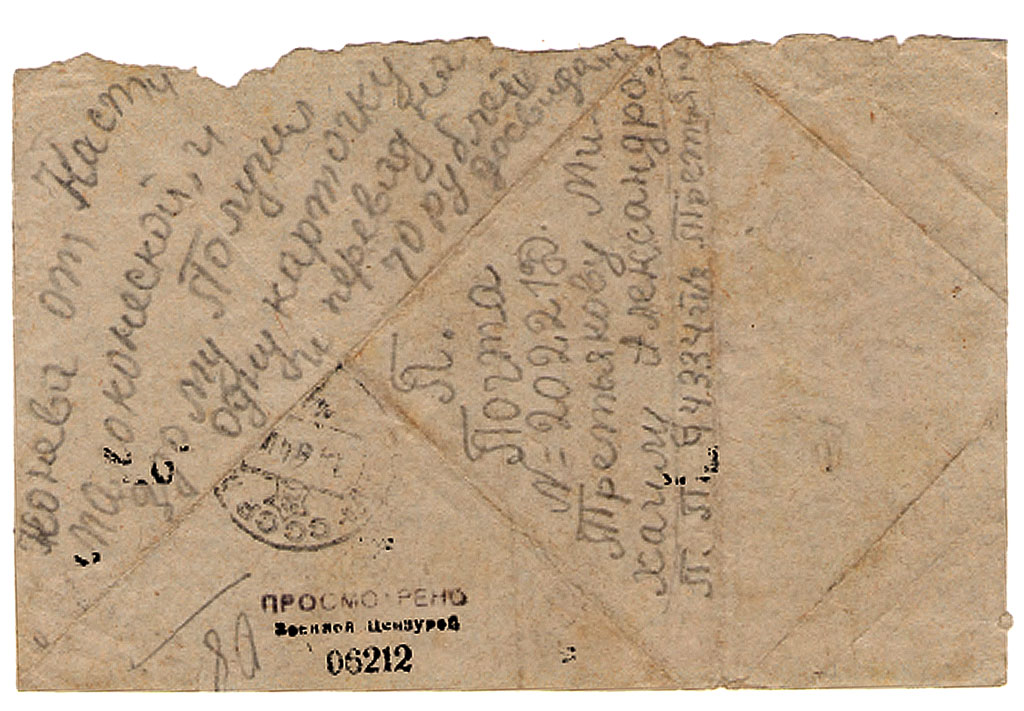 конева от Насти
Малоконеской, и
Получил
одну карточку
и перевод на
70 рублей
досвидан
П.
Почта
N=20221Ф.
Третьякову Ми-
хаилу Александро.
П. П. 943334
ПРОСМОТРЕНО
Военной Цензурой
06212